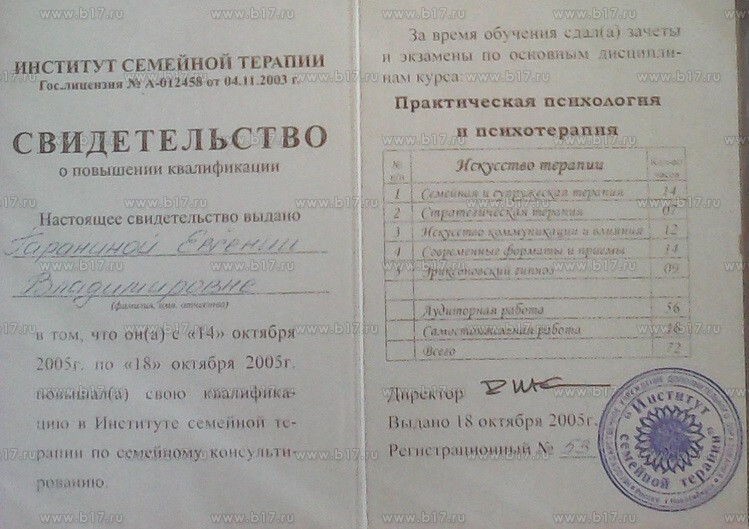 ИНСТИТУТ СЕМЕЙНОЙ ТЕРАПИИ
Гос.лицензия № А-012458 от 04.11.2003 г.
СВИДЕТЕЛЬСТВО
о повышении квалификации
Настоящее свидетельство выдано
Гараниной Евгении
Владимировне
(фамилия, имя, отчество)
в том, что он(а) с «14» октября
2005г. по «18» октября 2005г.
повышал(а) свою квалифика-
цию в Институте семейной те-
рапии по семейному консульти-
рованию.
За время обучения сдал(а) зачеты
и экзамены по основным дисципли-
нам курса:
Практическая психология
и психотерапия
№ п/п Искусство терапии Кол-во часов
1 Семейная и супружеская терапия 14
2 Стратегическая терапия 07
3 Искусство коммуникации и влияния 12
4 Современные форматы и приемы 14
5 Эриксоновский гипноз 09
Аудиторная работа 56
Самостоятельная работа 16
Всего 72
Директор
Выдано 18 октября 2005г.
Регистрационный № 53
"Институт семейной терапии"
www.b17.ru